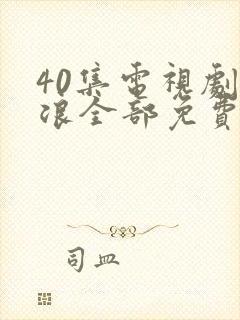 40集電視劇
浪全部免費
司皿